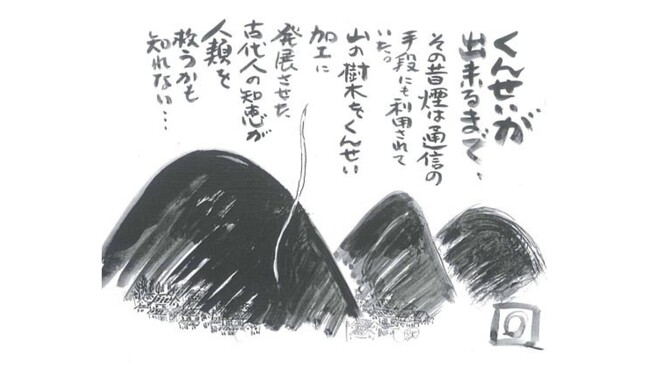 くんせいが
出来るまで、
その昔煙は通信の
手段にも利用されて
いた。
山の樹木をくんせい
加工に
発展させた
古代人の知恵が
人類を
救うかも
知れない…